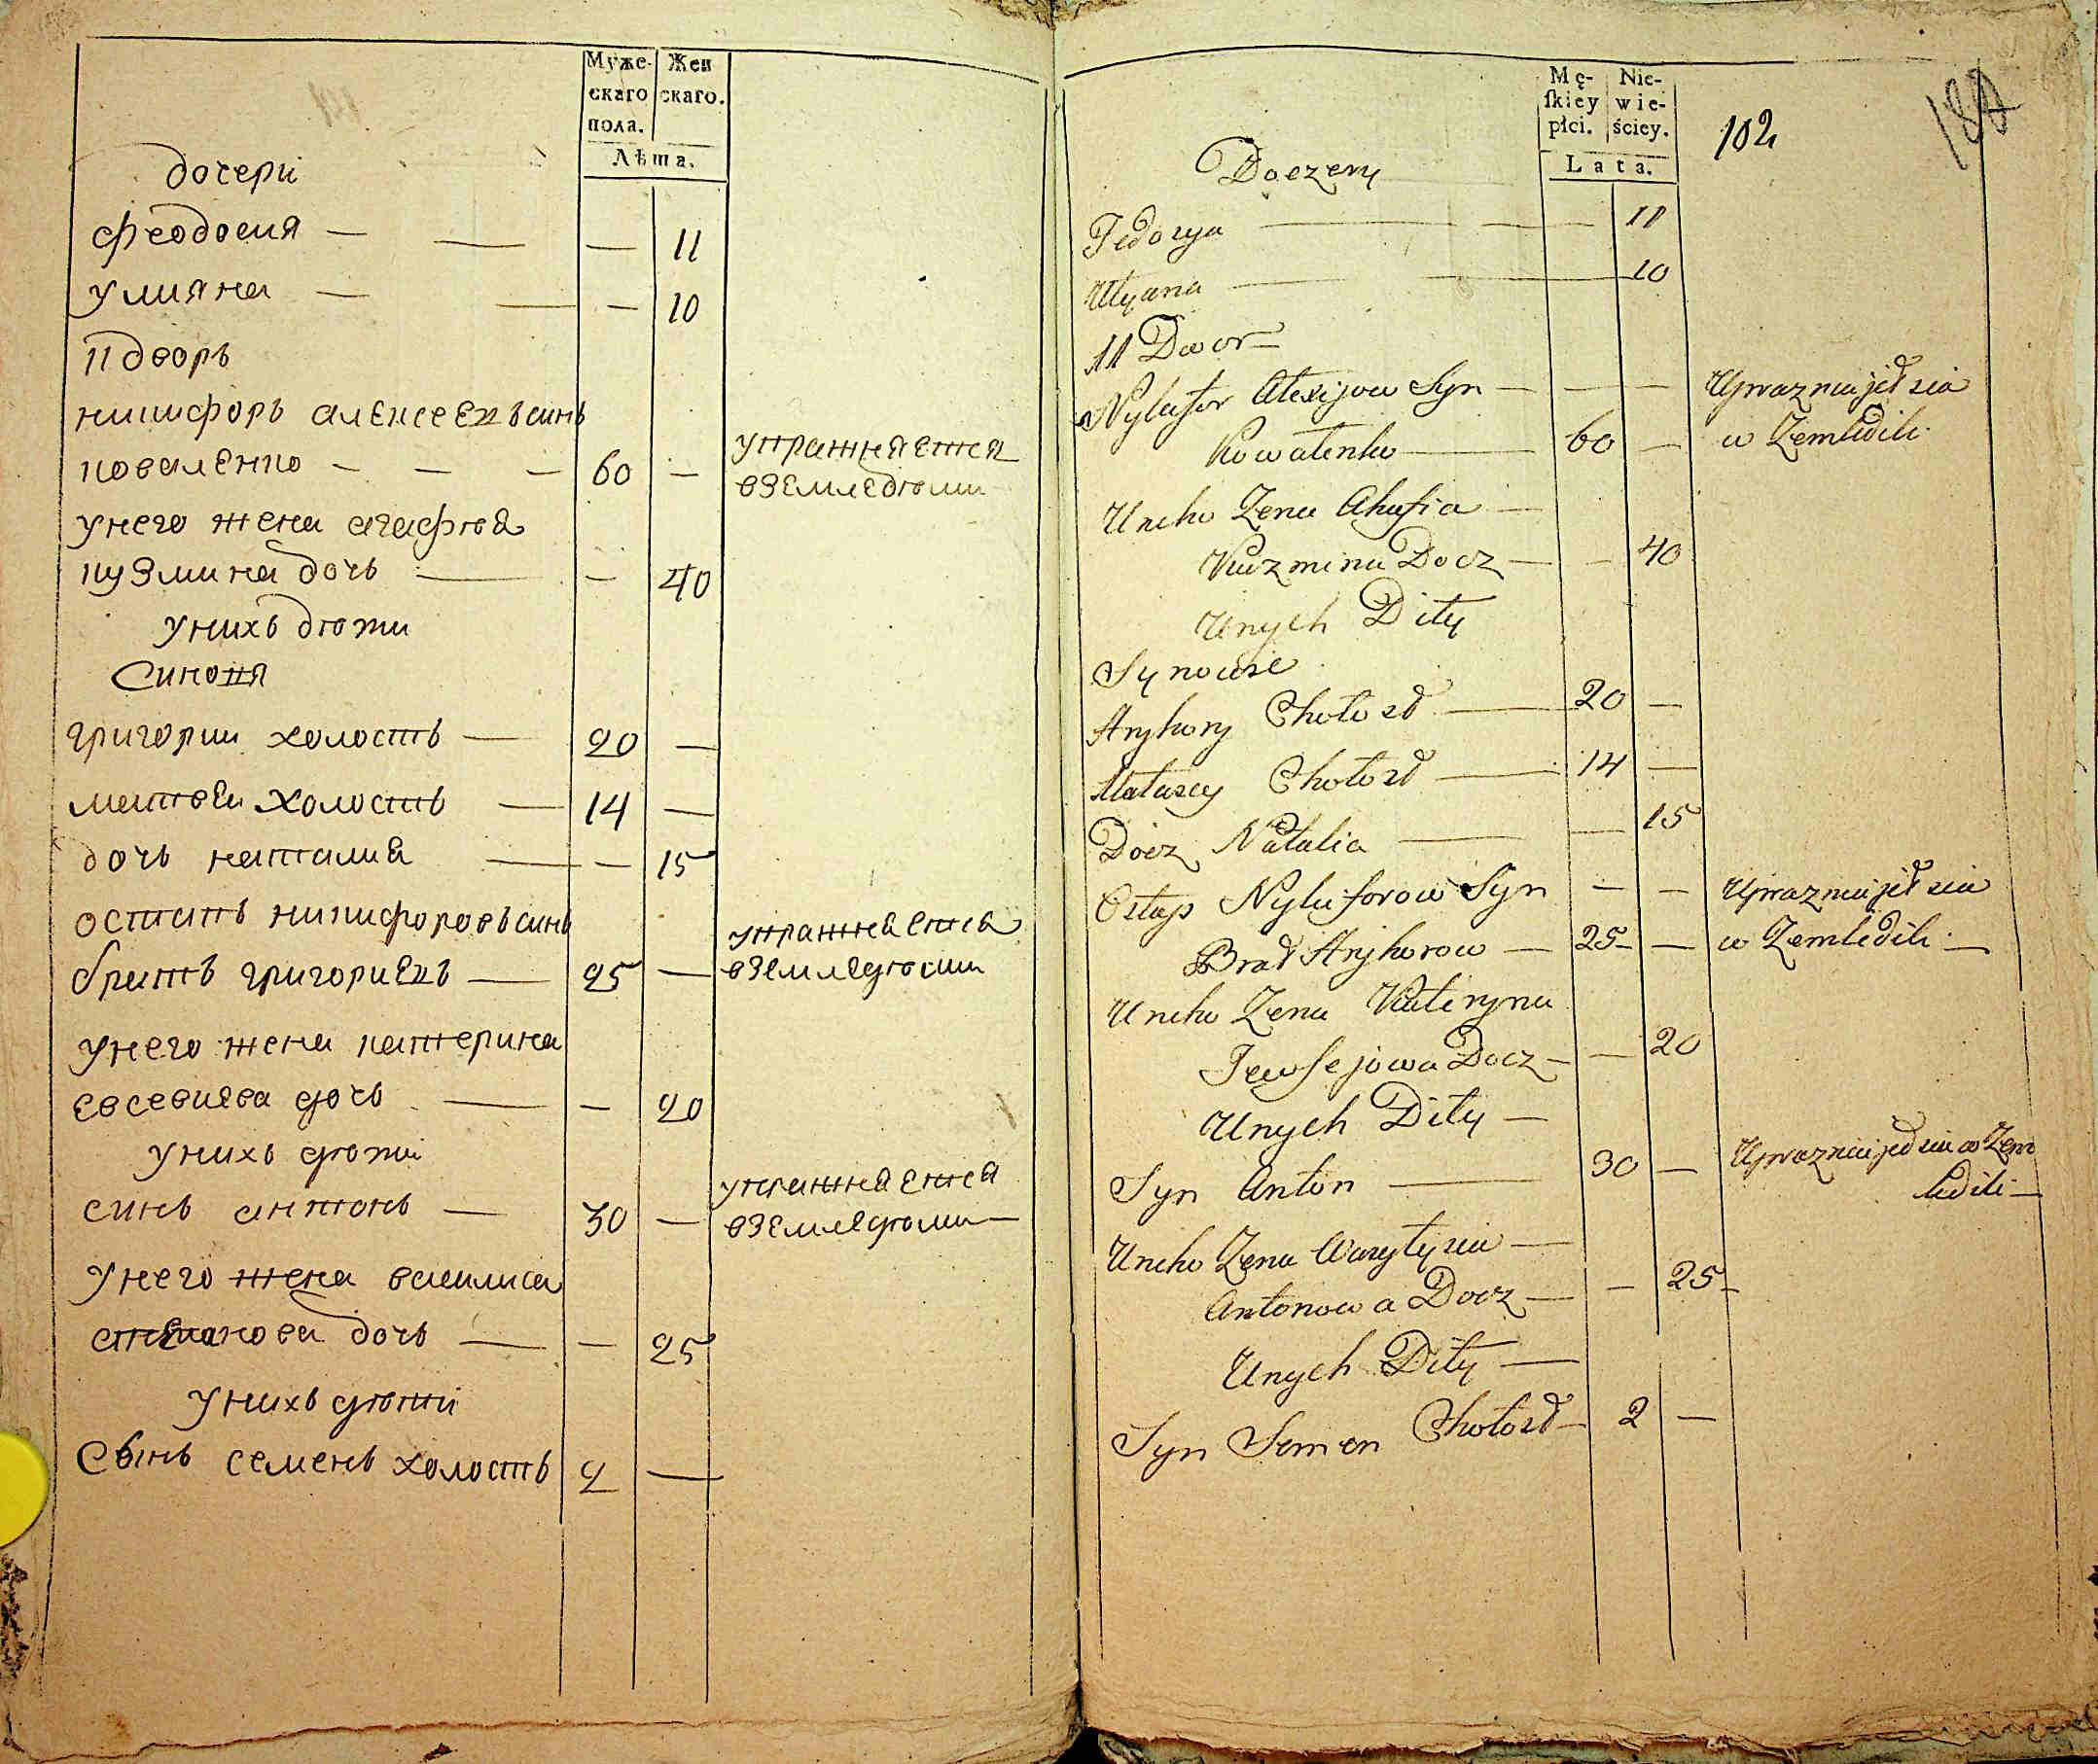 Муже-
скаго
пола.
Жен
скаго.
Лѣта.
дочери
феодосия — — — 11
улияна — — — 10
11 дворъ
никифоръ алексеевъ синъ
коваленко — — — 60 —
упражняется
вземледѣлии
унего жена агафия
кузмина дочь — — 40
унихъ дѣти
Синовя
григории холостъ — 20 —
матвеи холостъ — 14 —
дочь наталия — — 15
остапъ никифоровъ синъ
братъ григориевъ — 25 —
упражняется
вземледѣлии
унего жена катерина
евсевиева дочь — — 20
унихъ дѣти
синъ антонъ — 30 —
упражняется
вземледѣлии —
унего жена василиса
степанова дочь — — 25
унихъ дѣти
Сынъ семенъ холостъ 2 —
Mę-
ſkiey
płci.
Nie-
wie-
ściey.
Lata.
102
Doczery
Fedosya — — — 11
Ulyana — — 10
11 Dwor —
Nykifor Alexijow Syn — — —
Kowalenko — 60 —
Uprazniajet sia
w Zemledili
Uneho Zena Ahafia —
Kuzmina Docz — — 40
Unych Dity
Synowie
Hryhory Chołost — 20 —
Matwey Chołost — 14 —
Docz Natalia — — 15
Ostap Nykiforow Syn — —
Brat Hryhorow — 25 — —
Uprazniajet sia
w Zemledili —
Uneho Zena Kateryna
Jewsejowa Docz — — 20
Unych Dity —
Syn Anton — 30 —
Uprazniajet sia w Zem
ledili —
Uneho Zena Wasylysia —
Antonowa Docz — — 25 —
Unych Dity —
Syn Semen Chołost — 2 —